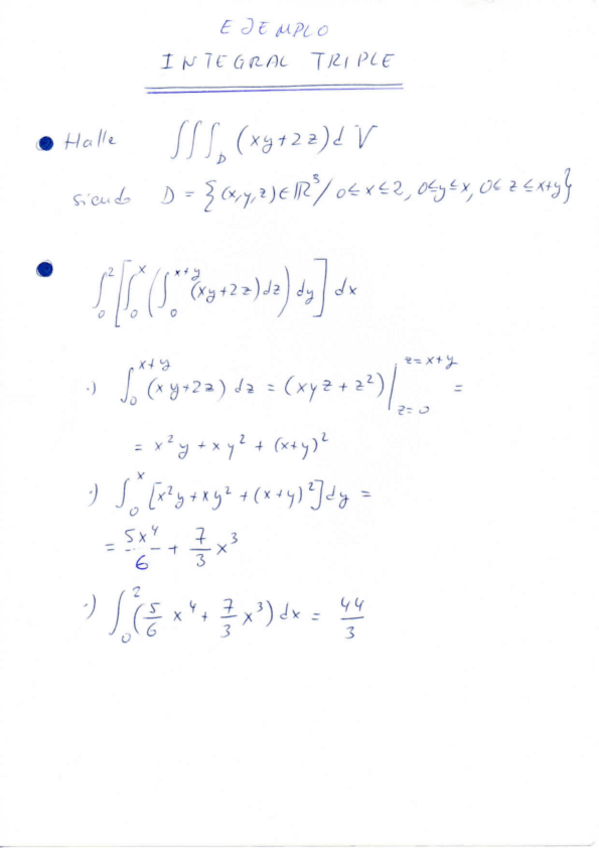 EJEMPLO
INTEGRAL TRIPLE
Halle ∫∫∫_D (xy+2z)dV
siendo D = {(x,y,z)∈ℝ³/ 0≤x≤2, 0≤y≤x, 0≤z≤x+y}
∫₀² [∫₀ˣ (∫₀ˣ⁺ʸ (xy+2z)dz) dy] dx
·) ∫₀ˣ⁺ʸ (xy+2z) dz = (xyz + z²)|_{z=0}^{z=x+y} =
= x²y + xy² + (x+y)²
·) ∫₀ˣ [x²y+xy²+(x+y)²]dy =
= 5x⁴/6 + 7/3 x³
·) ∫₀² (5/6 x⁴ + 7/3 x³) dx = 44/3